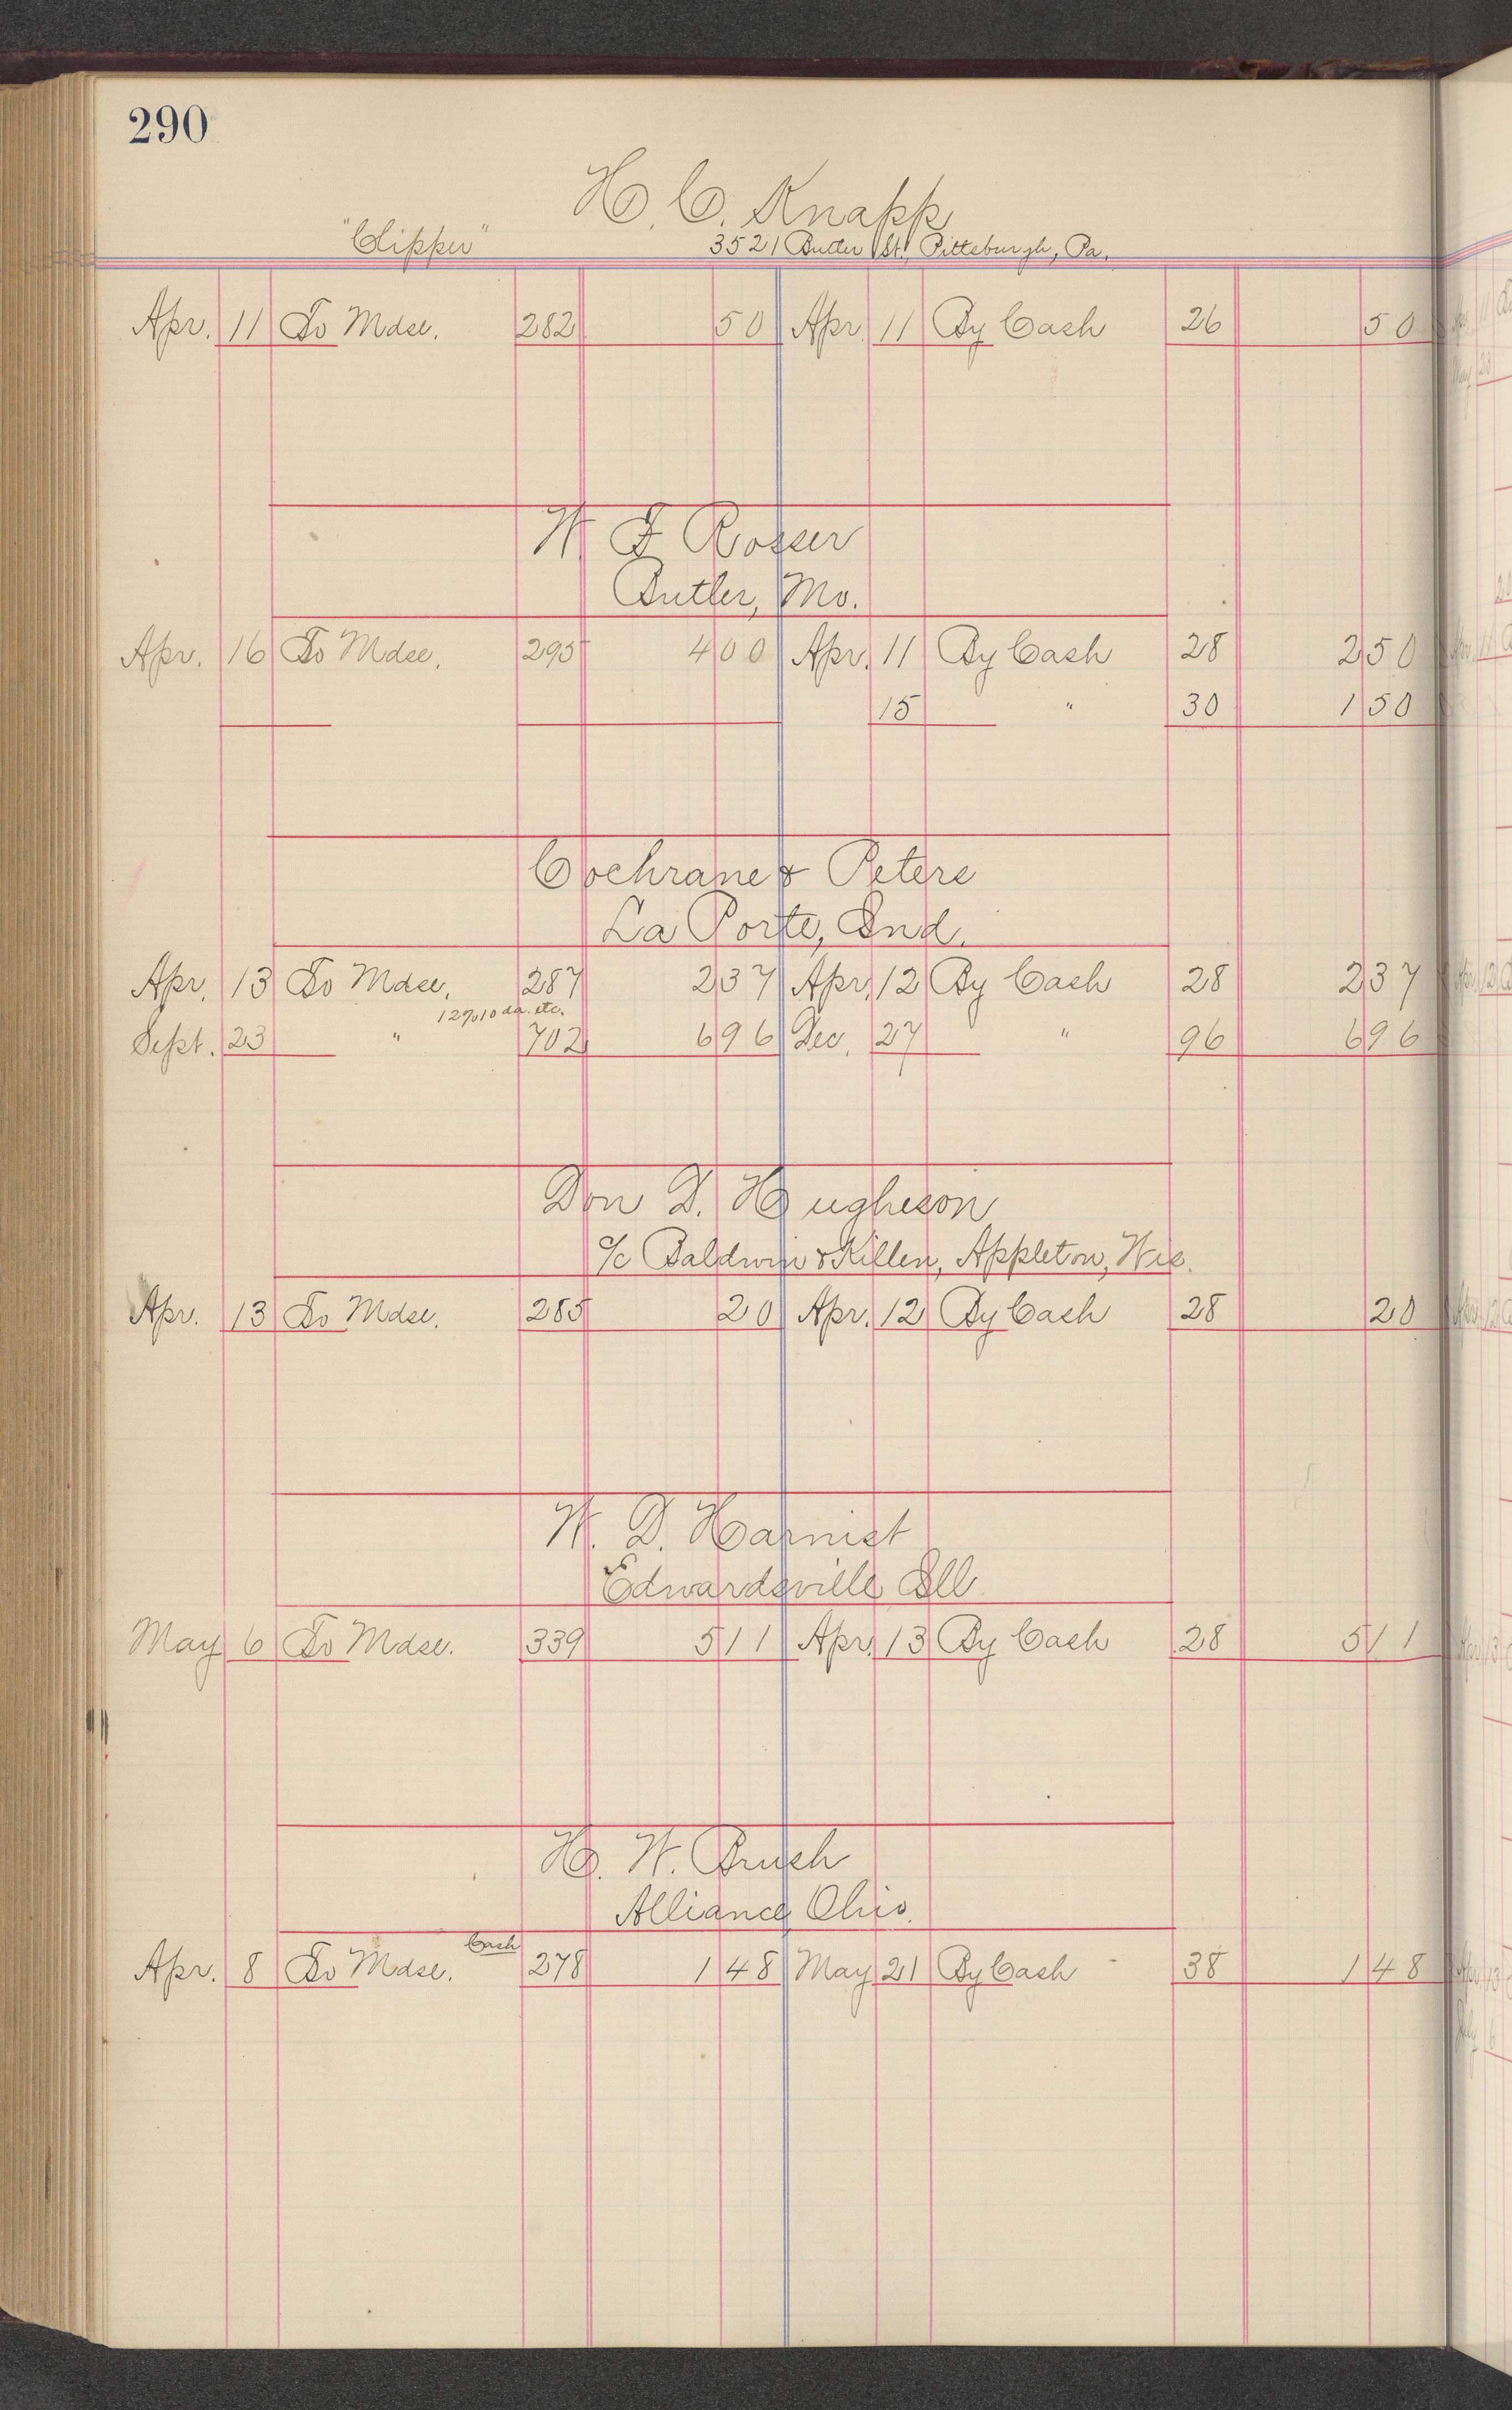 290
H. C. Knapp
"Clipper" 3521 Butler St., Pittsburgh, Pa.
Apr. 11 To Mdse. 282 50 Apr 11 By Cash 26 50
W. F. Rosser
Butler, Mo.
Apr. 16 To Mdse. 295 4 00 Apr. 11 By Cash 28 2 50
15 " 30 1 50
Cochrane & Peters
La Porte, Ind.
Apr. 13 To Mdse. 287 2 37 Apr. 12 By Cash 28 2 37
12% 10 da. etc.
Sept. 23 " 702 6 96 Dec. 27 " 96 6 96
Don D. Hugheson
c/o Baldwin & Killen, Appleton, Wis.
Apr. 13 To Mdse. 285 20 Apr. 12 By Cash 28 20
W. D. Harnist
Edwardsville Ill
May 6 To Mdse. 339 5 11 Apr. 13 By Cash 28 5 11
H. W. Brush
Alliance, Ohio.
Cash
Apr. 8 To Mdse. 278 1 48 May 21 By Cash 38 1 48